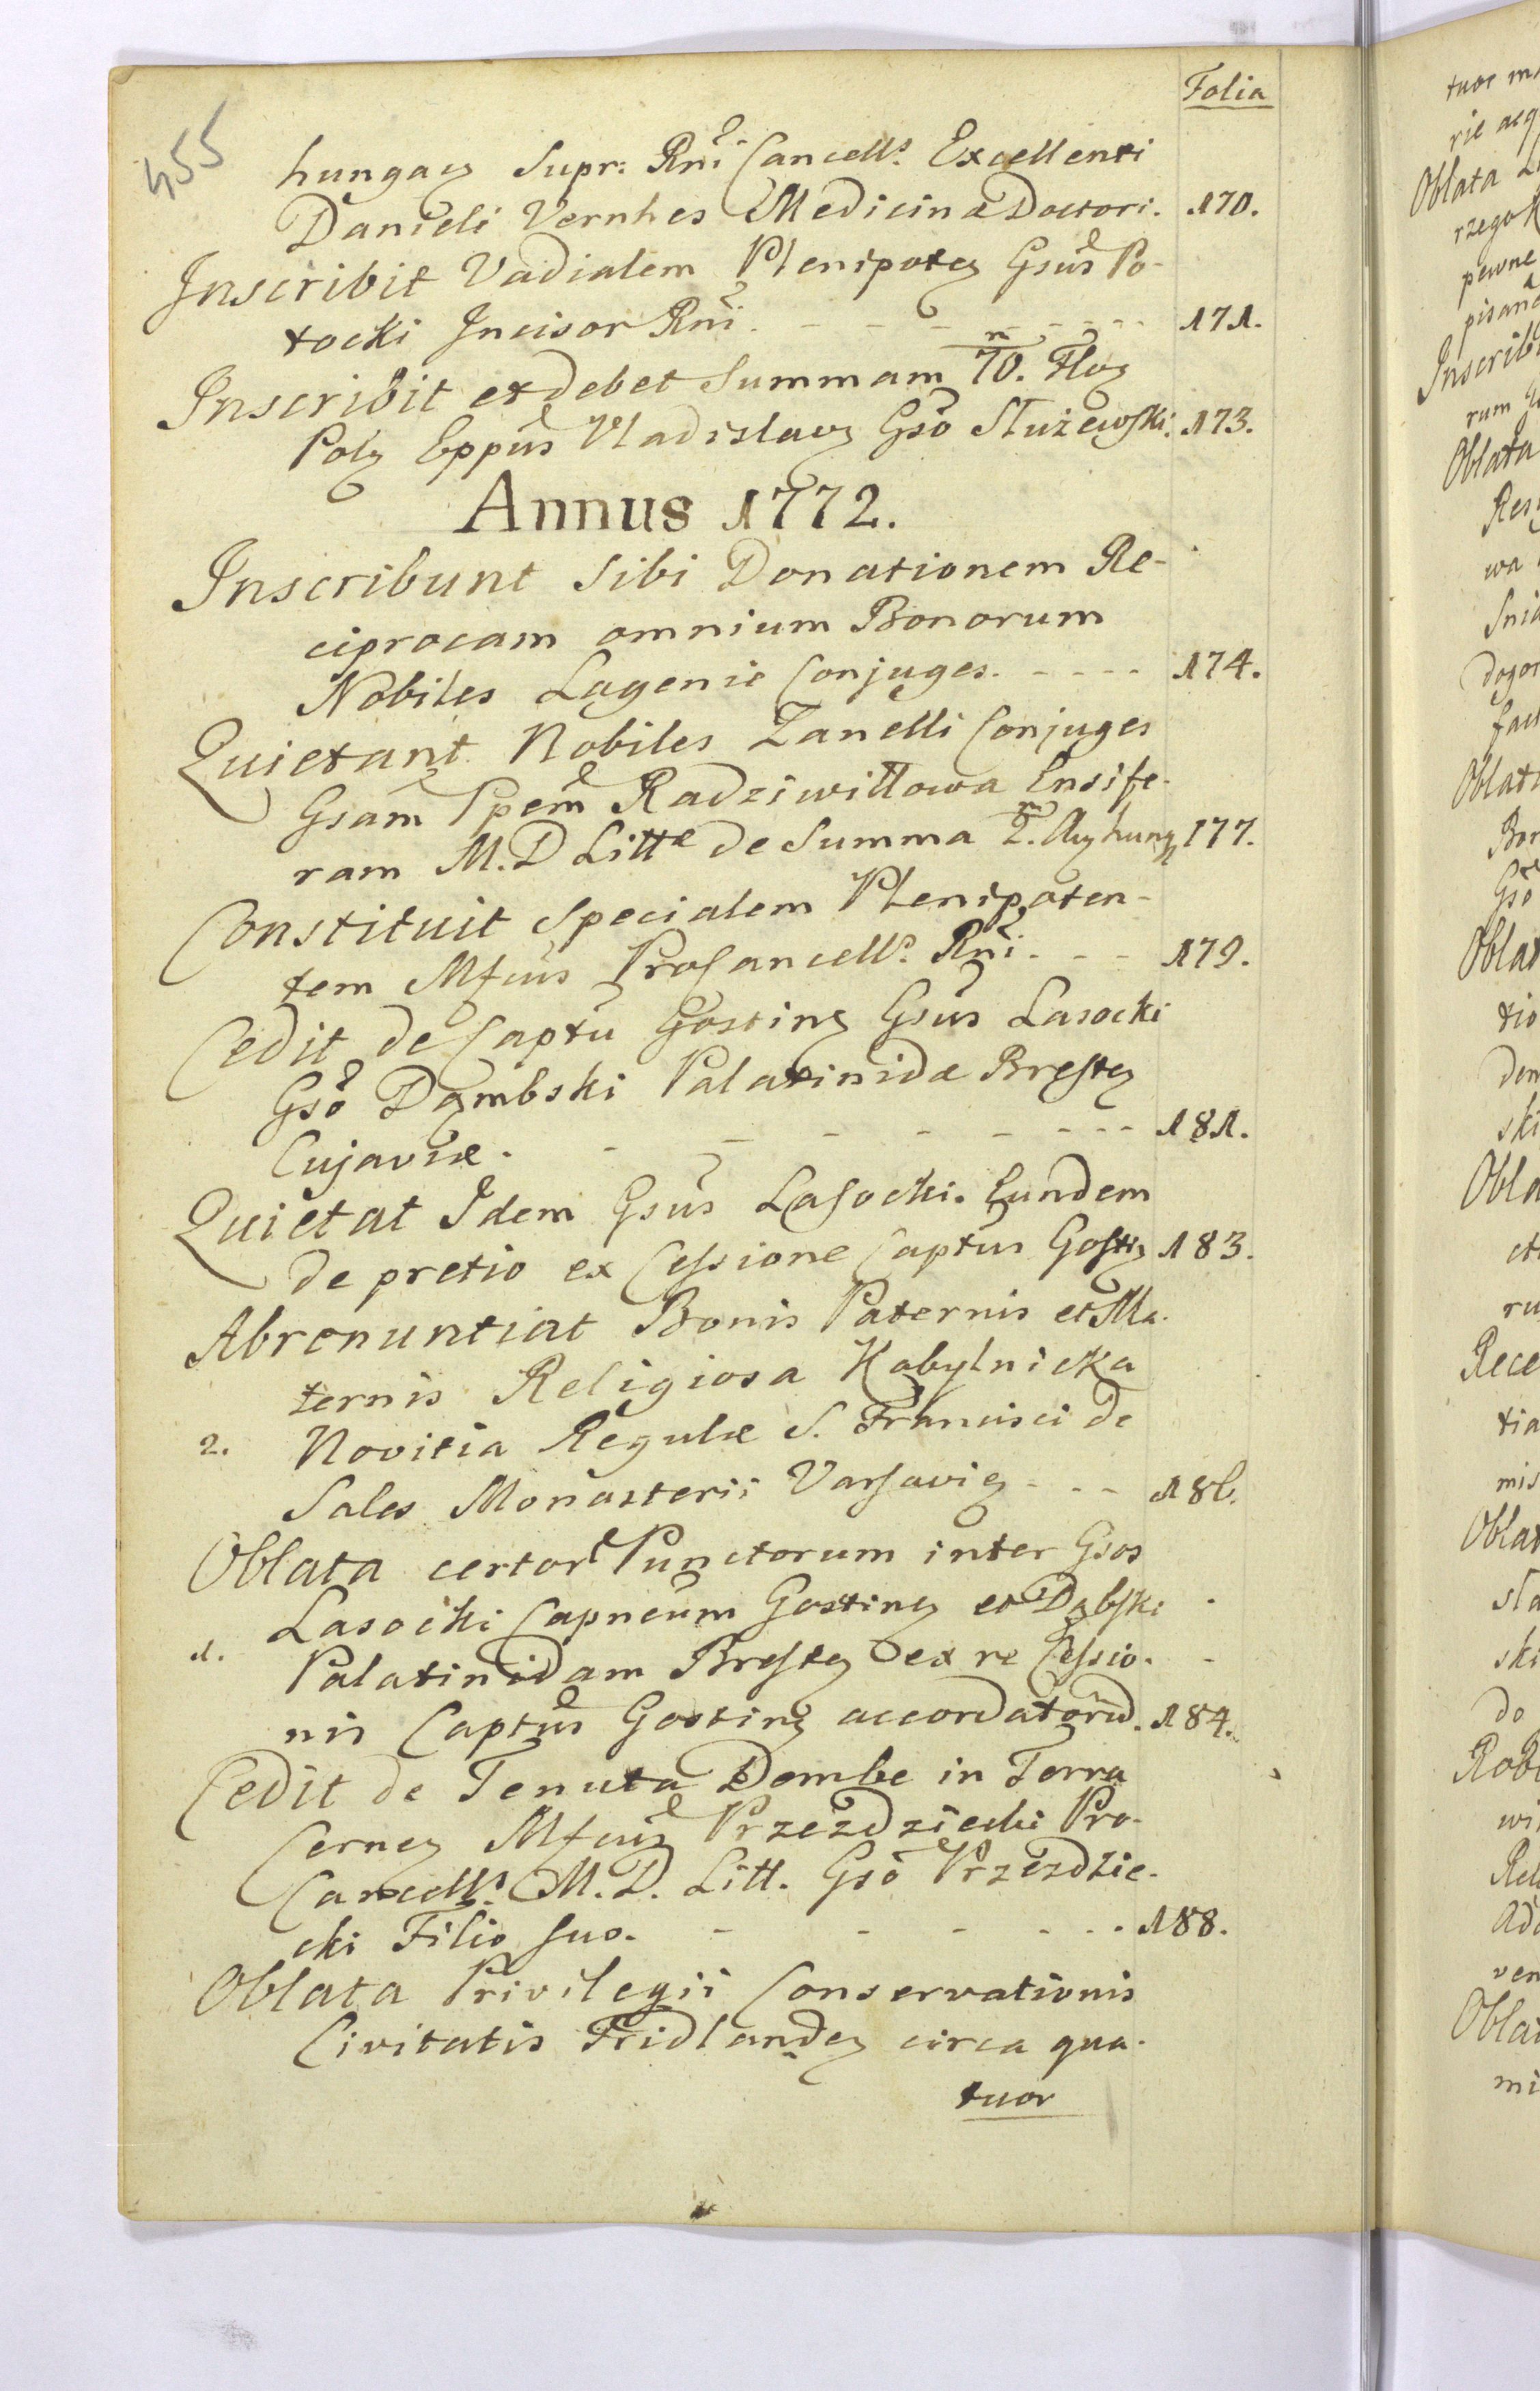 Folia
455
hungaꝫ Supr: Rñi Cancellˢ. Excellenti
Danieli Vernhes Medicinæ Doctori. 170.
Inscribit Vadialem Plenipoteꝫ Gsus Po-
tocki Incisor Rñi. - - - - - - - 171.
Inscribit et debet Summam 70.ᵐ Floꝫ
Polꝫ Eppus Vladislavꝫ Gso Służewski. 173.
Annus 1772.
Inscribunt Sibi Donationem Re-
ciprocam omnium Bonorum
Nobiles Lagenie Conjuges. - - - - 174.
Quietant Nobiles Zanelli Conjuges
Gsam Ppem Radziwiłłowa Ensife-
ram M. D Littæ de Summa 2.ᵐ Auꝫ hunꝫ 177.
Constituit Specialem Plenipoten-
tem Mfcus ProCancellˢ. Rñi. - - 179.
Cedit de Captu Gostinꝫ Gsus Lasocki
Gso Dꝫmbski Palatinidæ Brestꝫ
Cujaviæ. - - - - - - - - 181.
Quietat Idem Gsus Lasocki. Eundem
de pretio ex Cessione Captus Gostꝫ 183.
Abrenuntiat Bonis Paternis et Ma-
ternis Religiosa Kobylnicka
2. Novitia Regulæ S. Francisci de
Sales Monasterii Varsavieꝫ - - - 186.
Oblata certor Punctorum inter Gsos
Lasocki Capneum Gostinꝫ et Dąbski
1. Palatinidam Brestꝫ ex re Cessio-
nis Captus Gostinꝫ accordatorũ. 184.
Cedit de Tenuta Dembe in Terra
Cerneꝫ Mfcus Przezdziecki Pro-
Cancellˢ. M. D. Litt. Gso Przezdzie-
cki Filio suo. - - - - - - 188.
Oblata Privilegii Conservationis
Civitatis Fridlandeꝫ circa qua-
tuor